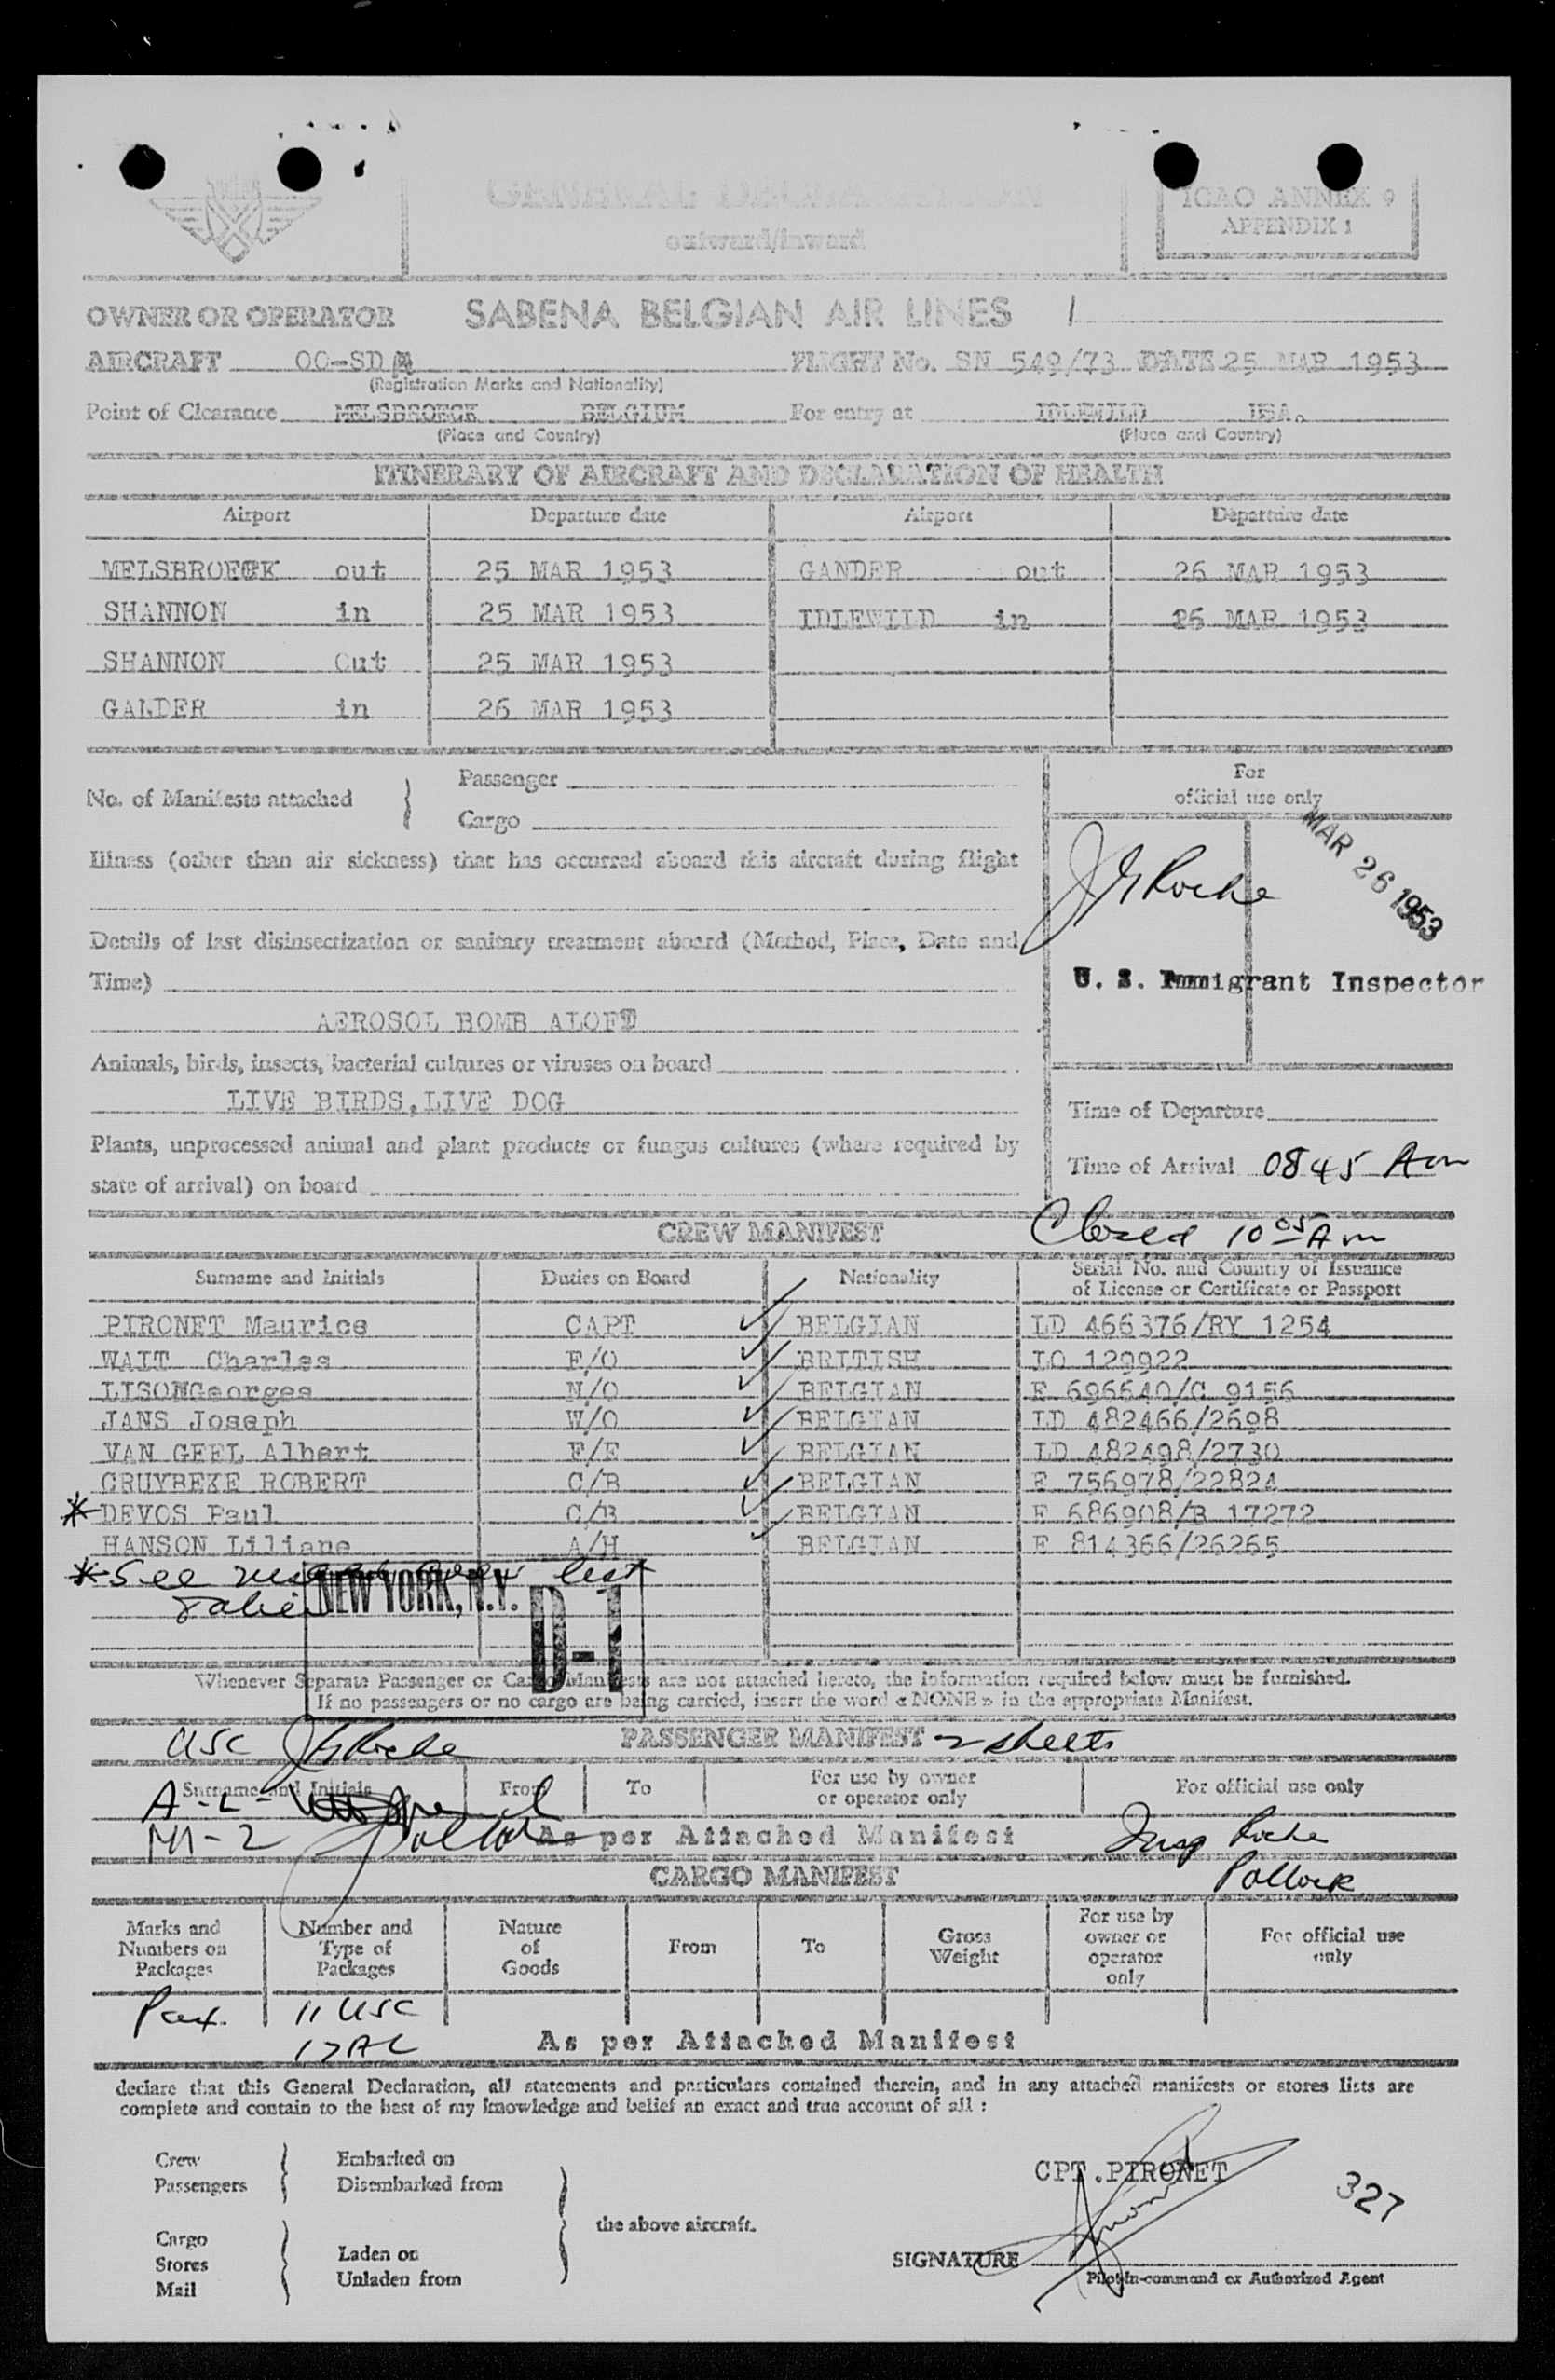 GENERAL DECLARATION
outward/inward
ICAO ANNEX 9
APPENDIX 1
OWNER OR OPERATOR SABENA BELGIAN AIR LINES
AIRCRAFT OO-SD FLIGHT No. SN 549/73 DATE 25 MAR 1953
(Registration Marks and Nationality)
Point of Clearance MELSBROECK BELGIUM For entry at IDLEWILD
(Place and Country) (Place and Country)
ITINERARY OF AIRCRAFT AND DECLARATION OF HEALTH
Airport Departure date Airport Departure date
MELSBROECK out 25 MAR 1953 GANDER out 26 MAR 1953
SHANNON in 25 MAR 1953 IDLEWILD in 26 MAR 1953
SHANNON Out 25 MAR 1953
GALDER in 26 MAR 1953
No. of Manifests attached
Passenger
Cargo
For
official use only
MAR 26 1953
Illness (other than air sickness) that has occurred aboard this aircraft during flight
J G Roche
Details of last disinsectization or sanitary treatment aboard (Method, Place, Date and
Time)
U. S. Immigrant Inspector
AEROSOL BOMB ALOFT
Animals, birds, insects, bacterial cultures or viruses on board
LIVE BIRDS, LIVE DOG
Time of Departure
Plants, unprocessed animal and plant products or fungus cultures (where required by
state of arrival) on board
Time of Arrival 0845 Am
CREW MANIFEST Closed 10 05 Am
Surname and Initials Duties on Board Nationality Serial No. and Country of Issuance
of License or Certificate or Passport
PIRONET Maurice CAPT BELGIAN LD 466376/RY 1254
WAIT Charles F/O BRITISH LO 129922
LISONGeorges N/O BELGIAN E 696640/C 9156
JANS Joseph W/O BELGIAN LD 482466/2698
VAN GEEL Albert F/E BELGIAN LD 482498/2730
CRUYBEKE ROBERT C/B BELGIAN E 756978/22824
* DEVOS Paul C/B BELGIAN E 686908/B 17272
HANSON Liliane A/H BELGIAN E 814366/26265
* See crew list
NEW YORK, N.Y.
D-1
Whenever Separate Passenger or Cargo Manifests are not attached hereto, the information required below must be furnished.
If no passengers or no cargo are being carried, insert the word « NONE » in the appropriate Manifest.
USC J G Roche PASSENGER MANIFEST 2 sheets
Surname and Initials From To For use by owner
or operator only
For official use only
A-L-
M-2 Pollock As per Attached Manifest Insp Roche
CARGO MANIFEST Pollock
Marks and
Numbers on
Packages
Number and
Type of
Packages
Nature
of
Goods
From To Gross
Weight
For use by
owner or
operator
only
For official use
only
Pax. 11 USC
17 AL As per Attached Manifest
declare that this General Declaration, all statements and particulars contained therein, and in any attached manifests or stores lists are
complete and contain to the best of my knowledge and belief an exact and true account of all :
Crew Embarked on
Passengers Disembarked from
CPT.PIRONET
327
the above aircraft.
Cargo
Stores Laden on
Mail Unladen from
SIGNATURE
Pilot-in-command or Authorized Agent